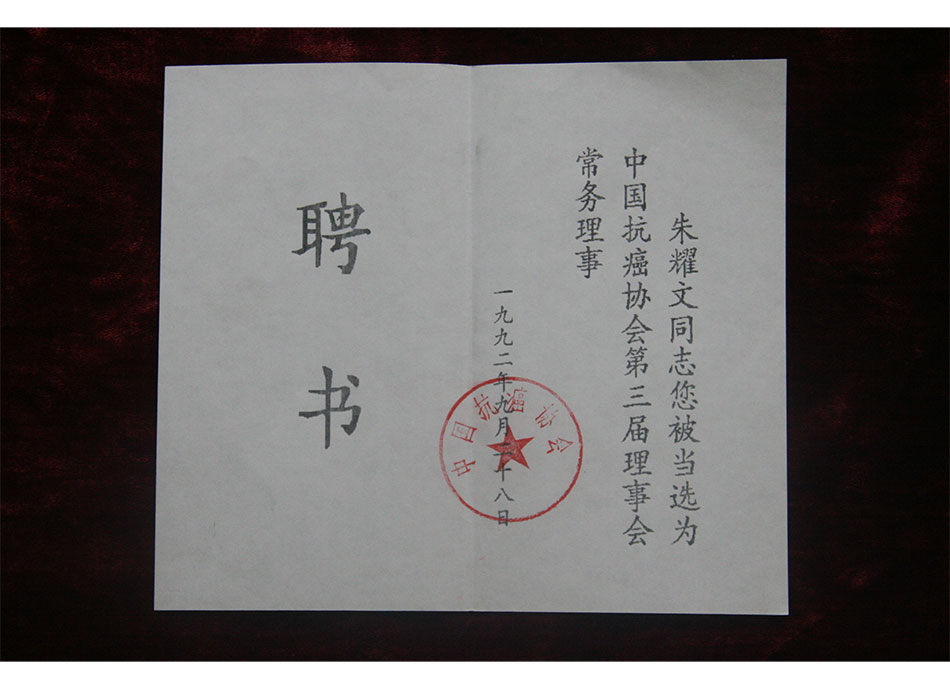 朱耀文同志您被当选为
中国抗癌协会第三届理事会
常务理事
一九九二年九月二十八日
中国抗癌协会
聘书